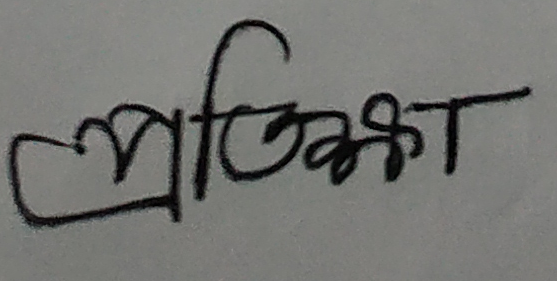 প্রতিক্ষা